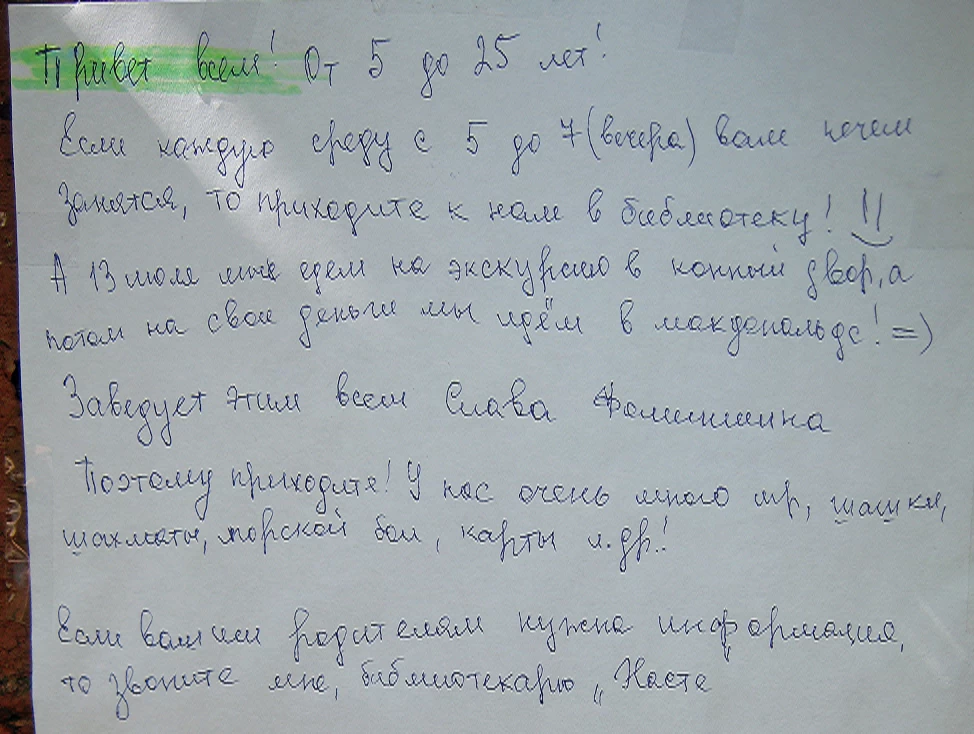 Привет всем! От 5 до 25 лет!
Если каждую среду с 5 до 7 (вечера) вам нечем
занятся, то приходите к нам в библиотеку!
А 13 июля мы едем на экскурсию в конный двор, а
потом на свои деньги мы идём в макдональдс! =)
Заведует этим всем Слава Фомишина
Поэтому приходите! У нас очень много игр, шашки,
шахматы, морской бой, карты и.др.!
Если вашим родителям нужна информация,
то звоните мне, библиотекарю, Насте